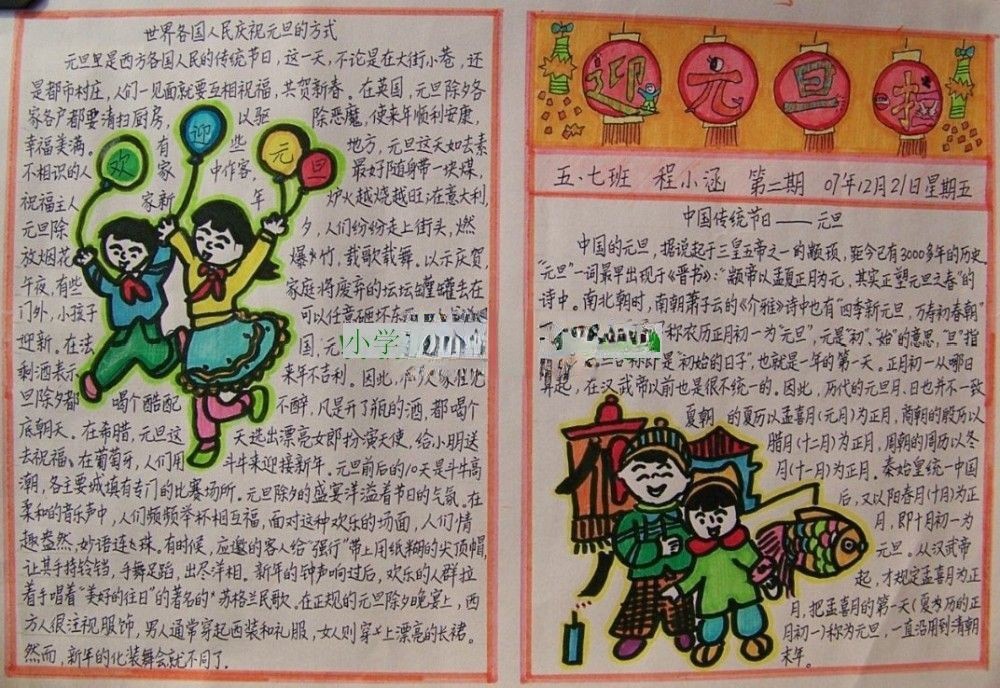 世界各国人民庆祝元旦的方式
元旦里是西方各国人民的传统节日，这一天，不论是在大街小巷，还
是都市村庄，人们一见面就要互相祝福，共贺新春。在英国，元旦除夕各
家各户都要清扫厨房，以驱除恶魔，使来年顺利安康，
幸福美满。有些地方，元旦这天如去素
不相识的人家中作客，最好随身带一块煤，
祝福主人家新年炉火越烧越旺；在意大利，
元旦除夕，人们纷纷走上街头，燃
放烟花爆竹，载歌载舞。以示庆贺
午夜，有些家庭将废弃的坛坛罐罐丢在
门外，小孩子可以任意砸坏
迎新。在法国，元
剩酒表示来年不吉利。因此，
旦除夕都喝个酩酊不醉，凡是开了瓶的酒，都喝个
底朝天。在希腊，元旦这天选出漂亮女郎扮演天使，给小朋送
去祝福。在葡萄牙，人们用斗牛来迎接新年。元旦前后的10天是斗牛高
潮，各主要城填有专门的比赛场所。元旦除夕的盛宴洋溢着节日的气氛。在
柔和的音乐声中，人们频频举杯相互福，面对这种欢乐的场面，人们情
趣盎然，妙语连珠。有时候，应邀的客人给“强行”带上用纸糊的尖顶帽，
让其手持铃铛，手舞足蹈，出尽洋相。新年的钟声响过后，欢乐的人群拉
着手唱着“美好的往日”的著名的苏格兰民歌。在正规的元旦除夕晚宴上，西
方人很注视服饰，男人通常穿起西装和礼服，女人则穿上漂亮的长裙。
然而，新年的化装舞会就不同了。
欢迎元旦
小学
迎元旦报
五·七班 程小涵 第二期 07年12月21日星期五
中国传统节日——元旦
中国的元旦，据说起于三皇五帝之一的颛顼，距今已有3000多年的历史
“元旦”一词最早出现于《晋书》：“颛帝以孟夏正月为元，其实正塑元旦之春”的
诗中。南北朝时，南朝萧子云的《介雅》诗中也有“四季新元旦，万寿初春朝”
称农历正月初一为“元旦”，元是“初”、“始”的意思，“旦”指
是“初始的日子”，也就是一年的第一天。正月初一从哪日
算起，在汉武帝以前也是很不统一的。因此，历代的元旦月、日也并不一致
夏朝的夏历以孟喜月(元月)为正月，商朝的殷历以
腊月(十二月)为正月，周朝的周历以冬
月(十一月)为正月。秦始皇统一中国
后，又以阳春月(十月)为正
月，即十月初一为
元旦。从汉武帝
起，才规定孟喜月为正
月，把孟喜月的第一天(夏为历的正
月初一)称为元旦，一直沿用到清朝
末年。